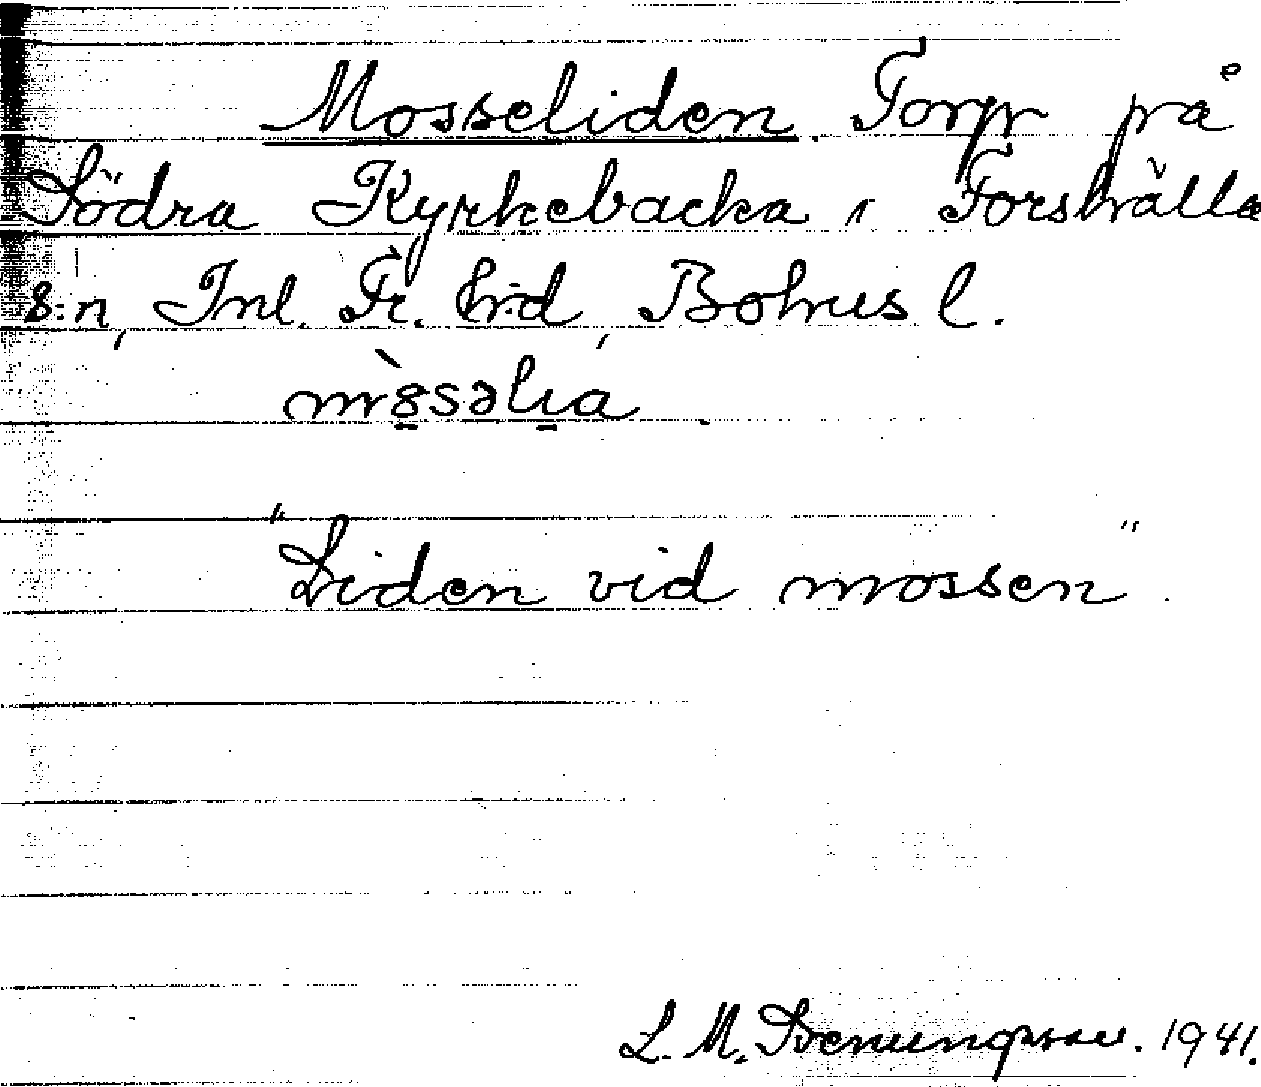 Mosseliden. Torp på
Södra Kyrkebacka i Forshälla
s:n, Inl. Fr. h:d, Bohus l.
m8̱̀səlı̱a
"Liden vid mossen".
L. M. Svenungsson. 1941.